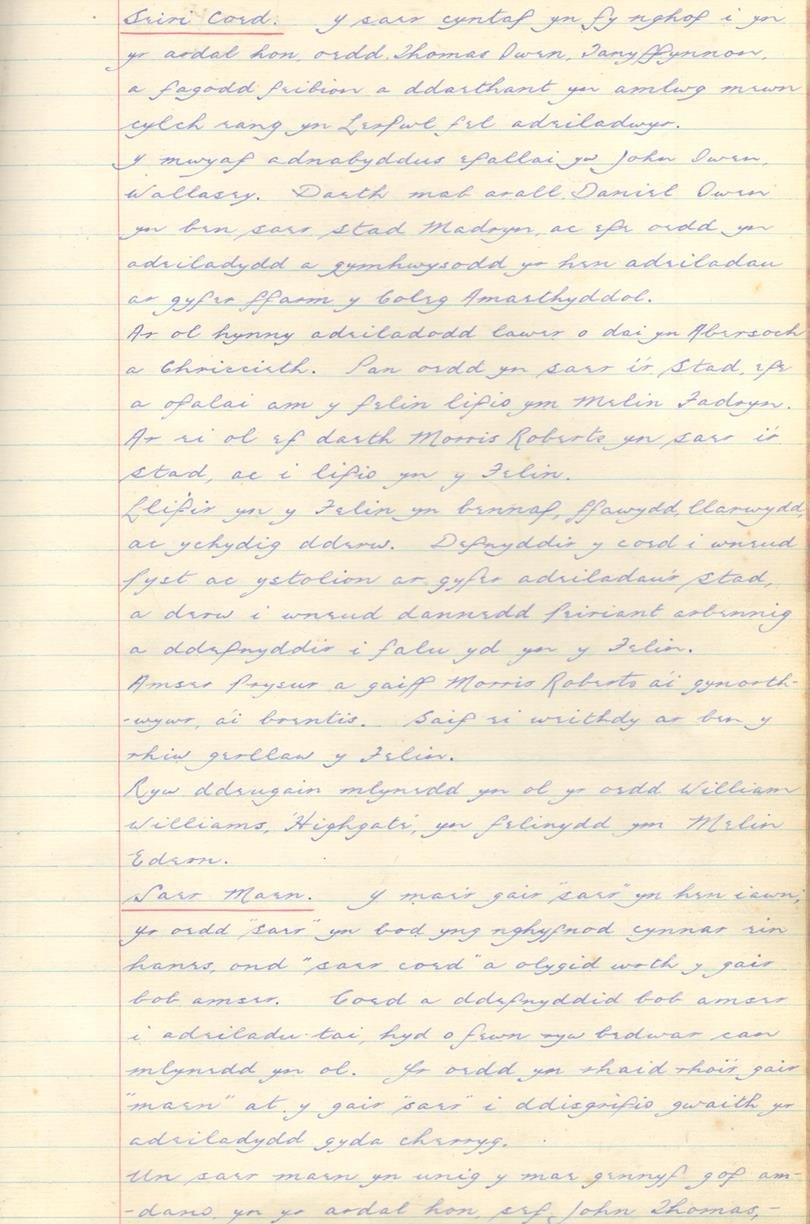 Seiri Coed. Y saer cyntaf yn fy nghof i yn
yr ardal hon, oedd Thomas Owen, Tanyffynnon,
a fagodd feibion a ddaethant yn amlwg mewn
cylch eang yn Lerfwl fel adeiladwyr.
Y mwyaf adnabyddus efallai yw John Owen,
Wallasey. Daeth mab arall Daniel Owen
yn ben saer stad Madryn, ac efe oedd yn
adeiladydd a gymhwysodd yr hen adeiladau
ar gyfer ffarm y Coleg Amaethyddol.
Ar ol hynny adeiladodd lawer o dai yn Abersoch
a Chriccieth. Pan oedd yn saer i'r Stad, efe
a ofalai am y felin lifio ym Melin Fadryn.
Ar ei ol ef daeth Morris Roberts yn saer i'r
stad, ac i lifio yn y Felin.
Llifir yn y Felin yn bennaf, ffawydd, llarwydd,
ac ychydig dderw. Defnyddir y coed i wneud
pyst ac ystolion ar gyfer adeiladau'r stad,
a derw i wneud dannedd peiriant arbennig
a ddefnyddir i falu yd yn y Felin.
Amser prysur a gaiff Morris Roberts a'i gynorth-
-wywr, a'i brentis. Saif ei weithdy ar ben y
rhiw gerllaw y Felin.
Ryw ddeugain mlynedd yn ol yr oedd William
Williams, 'Highgate', yn felinydd ym Melin
Edern.
Saer Maen. Y mae'r gair "saer" yn hen iawn;
yr oedd "saer" yn bod yng nghyfnod cynnar ein
hanes, ond "saer coed" a olygid wrth y gair
bob amser. Coed a ddefnyddid bob amser
i adeiladu tai, hyd o fewn ryw bedwar can
mlynedd yn ol. Yr oedd yn rhaid rhoi'r gair
"maen" at y gair "saer" i ddisgrifio gwaith yr
adeiladydd gyda cherryg.
Un saer maen yn unig y mae gennyf gof am-
-dano, yn yr ardal hon, sef, John Thomas,-